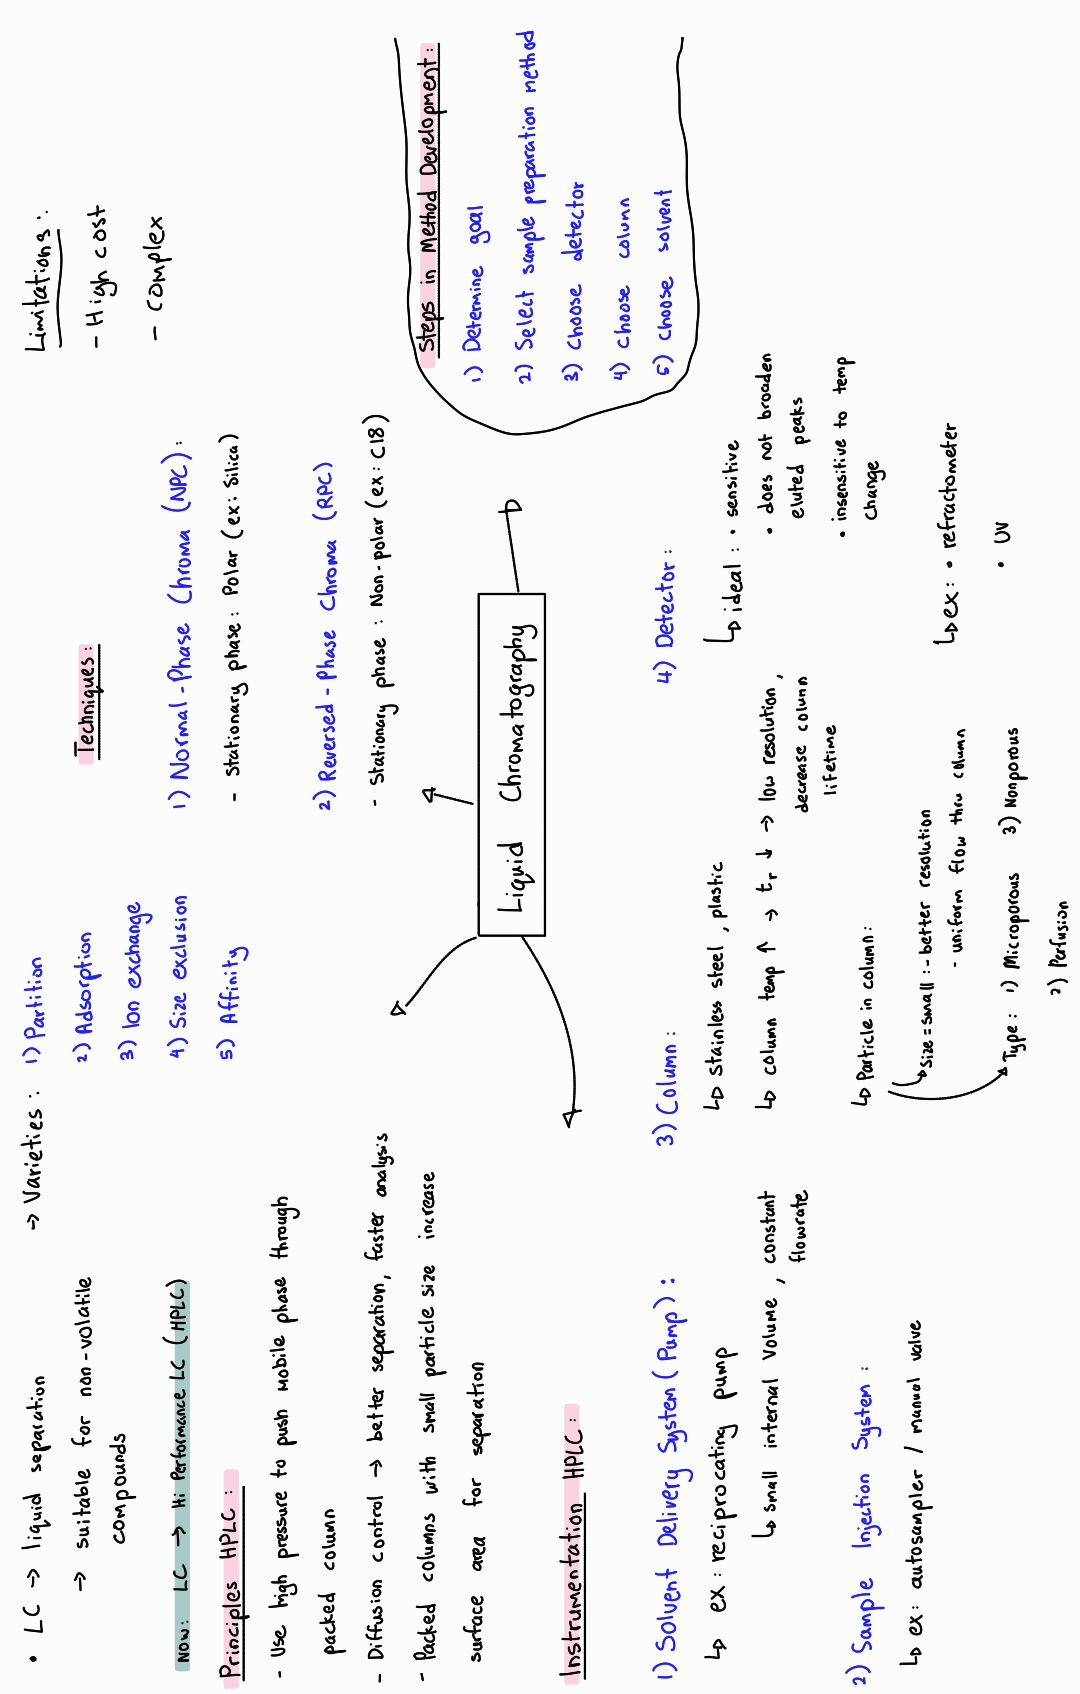 • LC → liquid separation
→ suitable for non-volatile
compounds
NOW: LC → Hi Performance LC (HPLC)
→ Varieties:
1) Partition
2) Adsorption
3) Ion exchange
4) Size exclusion
5) Affinity
Principles HPLC:
- Use high pressure to push mobile phase through
packed column
- Diffusion control → better separation, faster analysis
- Packed columns with small particle size increase
surface area for separation
Techniques:
1) Normal-Phase Chroma (NPC):
- Stationary phase: Polar (ex: Silica)
2) Reversed-Phase Chroma (RPC)
- Stationary phase: Non-polar (ex: C18)
Limitations:
- High cost
- Complex
Liquid Chromatography
Steps in Method Development:
1) Determine goal
2) Select sample preparation method
3) Choose detector
4) Choose column
5) Choose solvent
Instrumentation HPLC:
1) Solvent Delivery System (Pump):
↳ ex: reciprocating pump
↳ small internal volume, constant
flowrate
2) Sample Injection System:
↳ ex: autosampler / manual valve
3) Column:
↳ stainless steel, plastic
↳ column temp ↑ → tr ↓ → low resolution,
decrease column
lifetime
↳ Particle in column:
Size = small: - better resolution
- uniform flow thru column
Type: 1) Microporous 3) Nonporous
2) Perfusion
4) Detector:
↳ ideal: • sensitive
• does not broaden
eluted peaks
• insensitive to temp
change
↳ ex: • refractometer
• UV